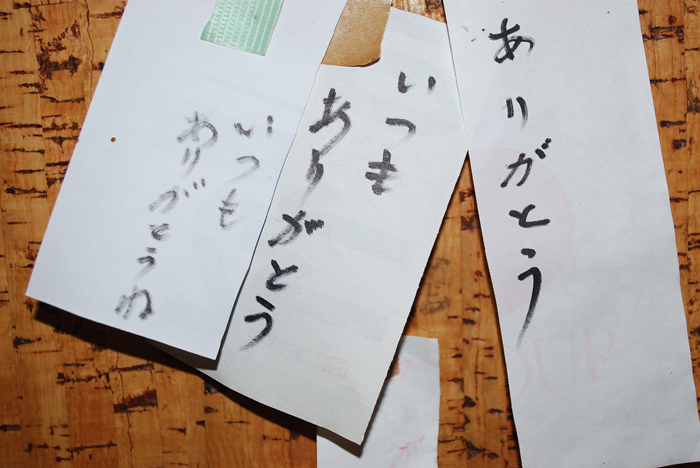 ありがとう
いつも
ありがとう
いつも
ありがとうね
OUP
が